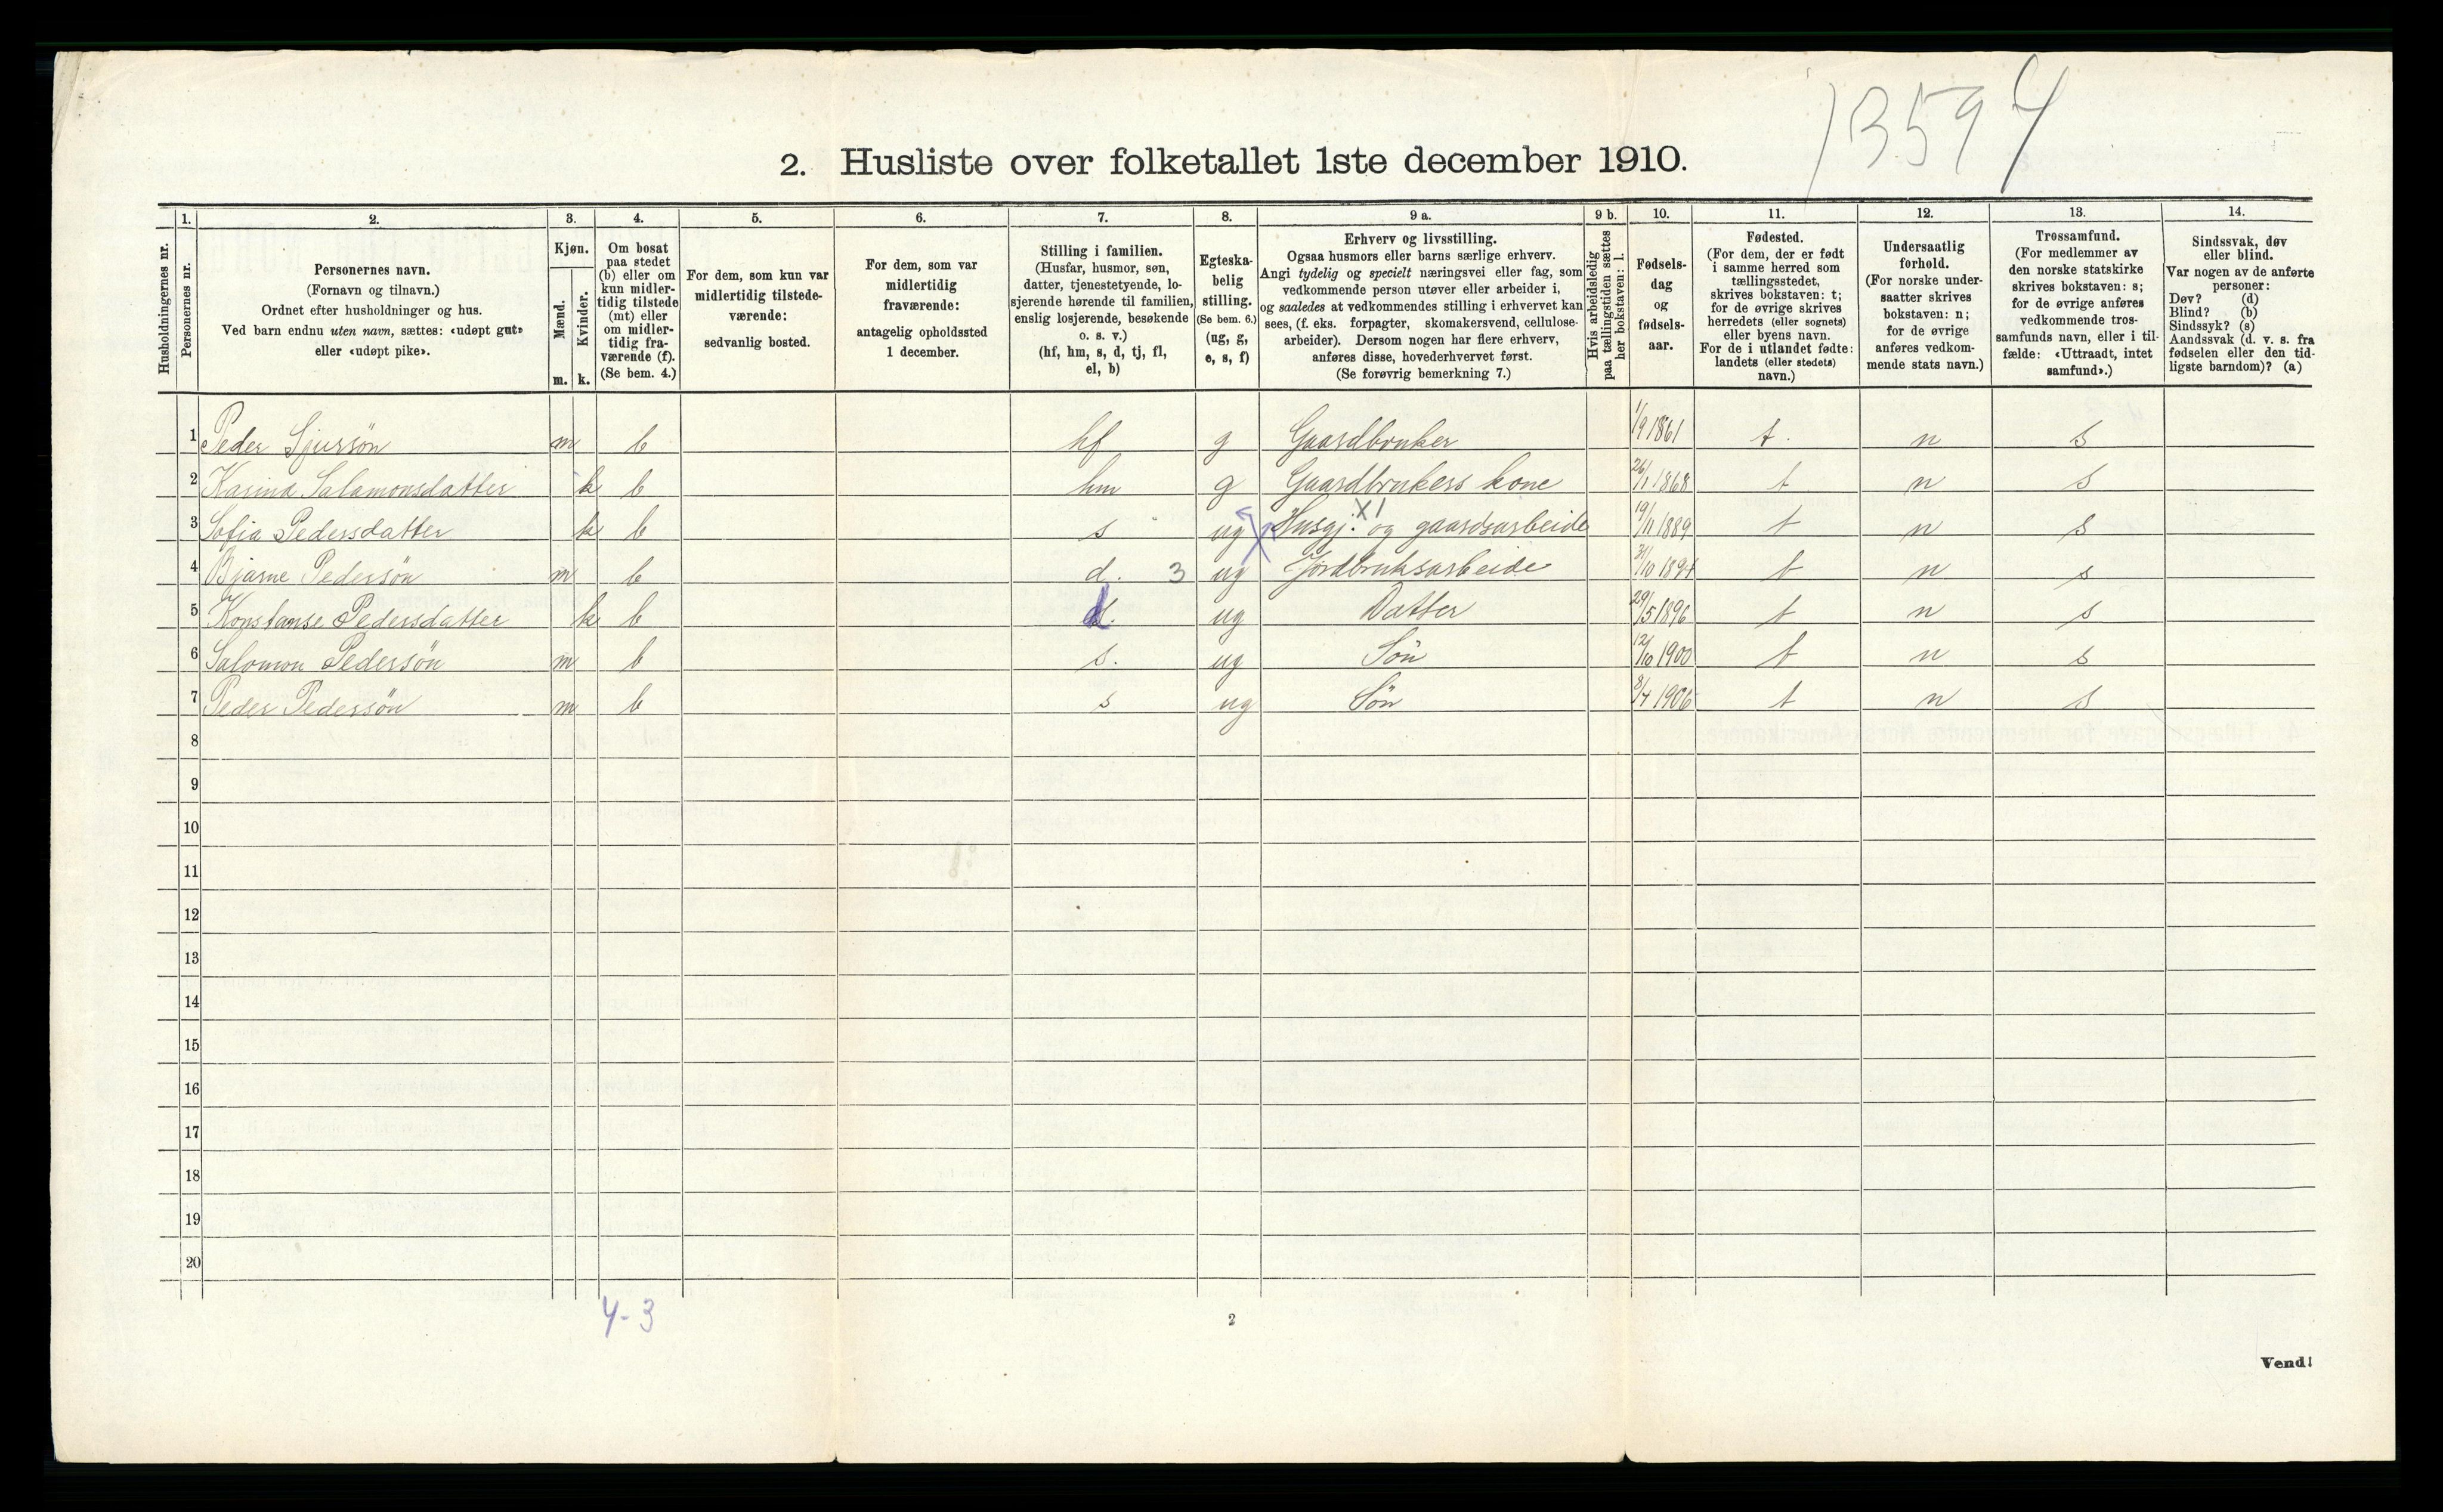 13594
2. Husliste over folketallet 1ste december 1910.
Husholdningernes nr.
1.
Personernes nr.
2.
Personernes navn.
(Fornavn og tilnavn.)
Ordnet efter husholdninger og hus.
Ved barn endnu uten navn, sættes: «udøpt gut»
eller «udøpt pike».
3.
Kjøn.
Mænd.
Kvinder.
m. k.
4.
Om bosat
paa stedet
(b) eller om
kun midler-
tidig tilstede
(mt) eller
om midler-
tidig fra-
værende (f).
(Se bem. 4.)
5.
For dem, som kun var
midlertidig tilstede-
værende:
sedvanlig bosted.
6.
For dem, som var
midlertidig
fraværende:
antagelig opholdssted
1 december.
7.
Stilling i familien.
(Husfar, husmor, søn,
datter, tjenestetyende, lo-
sjerende hørende til familien,
enslig losjerende, besøkende
o. s. v.)
(hf, hm, s, d, tj, fl,
el, b)
8.
Egteska-
belig
stilling.
(Se bem. 6.)
(ug, g,
e, s, f)
9 a.
Erhverv og livsstilling.
Ogsaa husmors eller barns særlige erhverv.
Angi tydelig og specielt næringsvei eller fag, som
vedkommende person utøver eller arbeider i,
og saaledes at vedkommendes stilling i erhvervet kan
sees, (f. eks. forpagter, skomakersvend, cellulose-
arbeider). Dersom nogen har flere erhverv,
anføres disse, hovederhvervet først.
(Se forøvrig bemerkning 7.)
9 b.
Hvis arbeidsledig
paa tællingstiden sættes
her bokstaven: l.
10.
Fødsels-
dag
og
fødsels-
aar.
11.
Fødested.
(For dem, der er født
i samme herred som
tællingsstedet,
skrives bokstaven: t;
for de øvrige skrives
herredets (eller sognets)
eller byens navn.
For de i utlandet fødte:
landets (eller stedets)
navn.)
12.
Undersaatlig
forhold.
(For norske under-
saatter skrives
bokstaven: n;
for de øvrige
anføres vedkom-
mende stats navn.)
13.
Trossamfund.
(For medlemmer av
den norske statskirke
skrives bokstaven: s;
for de øvrige anføres
vedkommende tros-
samfunds navn, eller i til-
fælde: «Uttraadt, intet
samfund».)
14.
Sindssvak, døv
eller blind.
Var nogen av de anførte
personer:
Døv? (d)
Blind? (b)
Sindssyk? (s)
Aandssvak (d. v. s. fra
fødselen eller den tid-
ligste barndom)? (a)
1 Peder Sjursön m b hf g Gaardbruker 1/9 1861 t. n s
2 Karina Salamonsdatter k b hm g Gaardbrukers kone 26/1 1868 t n s
3 Sofia Pedersdatter k b s ug Husgj. X1 og gaardsarbeide 19/11 1889 t n s
4 Bjarne Pedersön m b d. 3 ug Jordbruksarbeide 31/10 1894 t n s
5 Konstanse Pedersdatter k b d. ug Datter 29/5 1896 t n s
6 Salomon Pedersön m b s. ug Sön 12/10 1900 t n s
7 Peder Pedersön m b s ug Sön 8/4 1906 t n s
8
9
10
11
12
13
14
15
16
17
18
19
20
4-3
2
Vend!